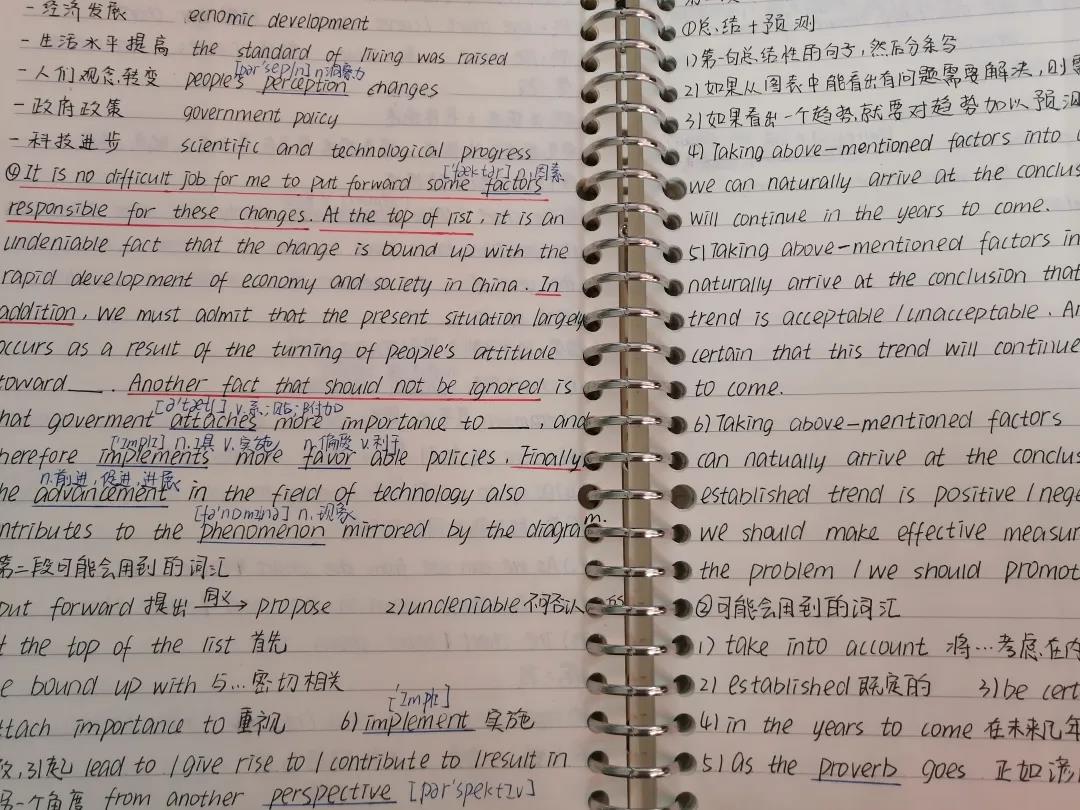 - 经济发展 ecnomic development
- 生活水平提高 the standard of living was raised
[pər'sepʃn] n.洞察力
- 人们观念转变 people's perception changes
- 政府政策 government policy
- 科技进步 scientific and technological progress
['fæktər] n.因素
It is no difficult job for me to put forward some factors
responsible for these changes. At the top of list, it is an
undeniable fact that the change is bound up with the
rapid development of economy and society in China. In
addition, we must admit that the present situation largely
occurs as a result of the turning of people's attitude
toward ___. Another fact that should not be ignored is
[ə'tætʃ] v.系;贴;附加
hat goverment attaches more importance to ___, and
['ɪmplɪ] n.工具 v.实施 n.偏爱 v.利于
herefore implements more favor able policies. Finally
n.前进,促进,进展
he advancement in the field of technology also
[fə'nɒmɪnə] n.现象
ntributes to the phenomenon mirrored by the diagram.
第二段可能会用到的词汇
put forward 提出 同义→ propose 2) undeniable 不可否认的
t the top of the list 首先
e bound up with 与…密切相关
['ɪmplɪ]
ttach importance to 重视 6) implement 实施
引起 lead to / give rise to / contribute to / result in
另一个角度 from another perspective [pər'spektɪv]
①总结+预测
1) 第一句总结性的句子,然后分条写
2) 如果从图表中能看出有问题需要解决,则需
3) 如果看出一个趋势,就要对趋势加以预测
4) Taking above-mentioned factors into
we can naturally arrive at the conclus
will continue in the years to come.
5) Taking above-mentioned factors in
naturally arrive at the conclusion that
trend is acceptable / unacceptable. An
certain that this trend will continue
to come.
6) Taking above-mentioned factors
can natually arrive at the conclus
established trend is positive / nega
we should make effective measur
the problem / we should promot
②可能会用到的词汇
1) take into account 将…考虑在内
2) established 既定的 3) be cert
4) in the years to come 在未来几年
5) as the proverb goes 正如谚